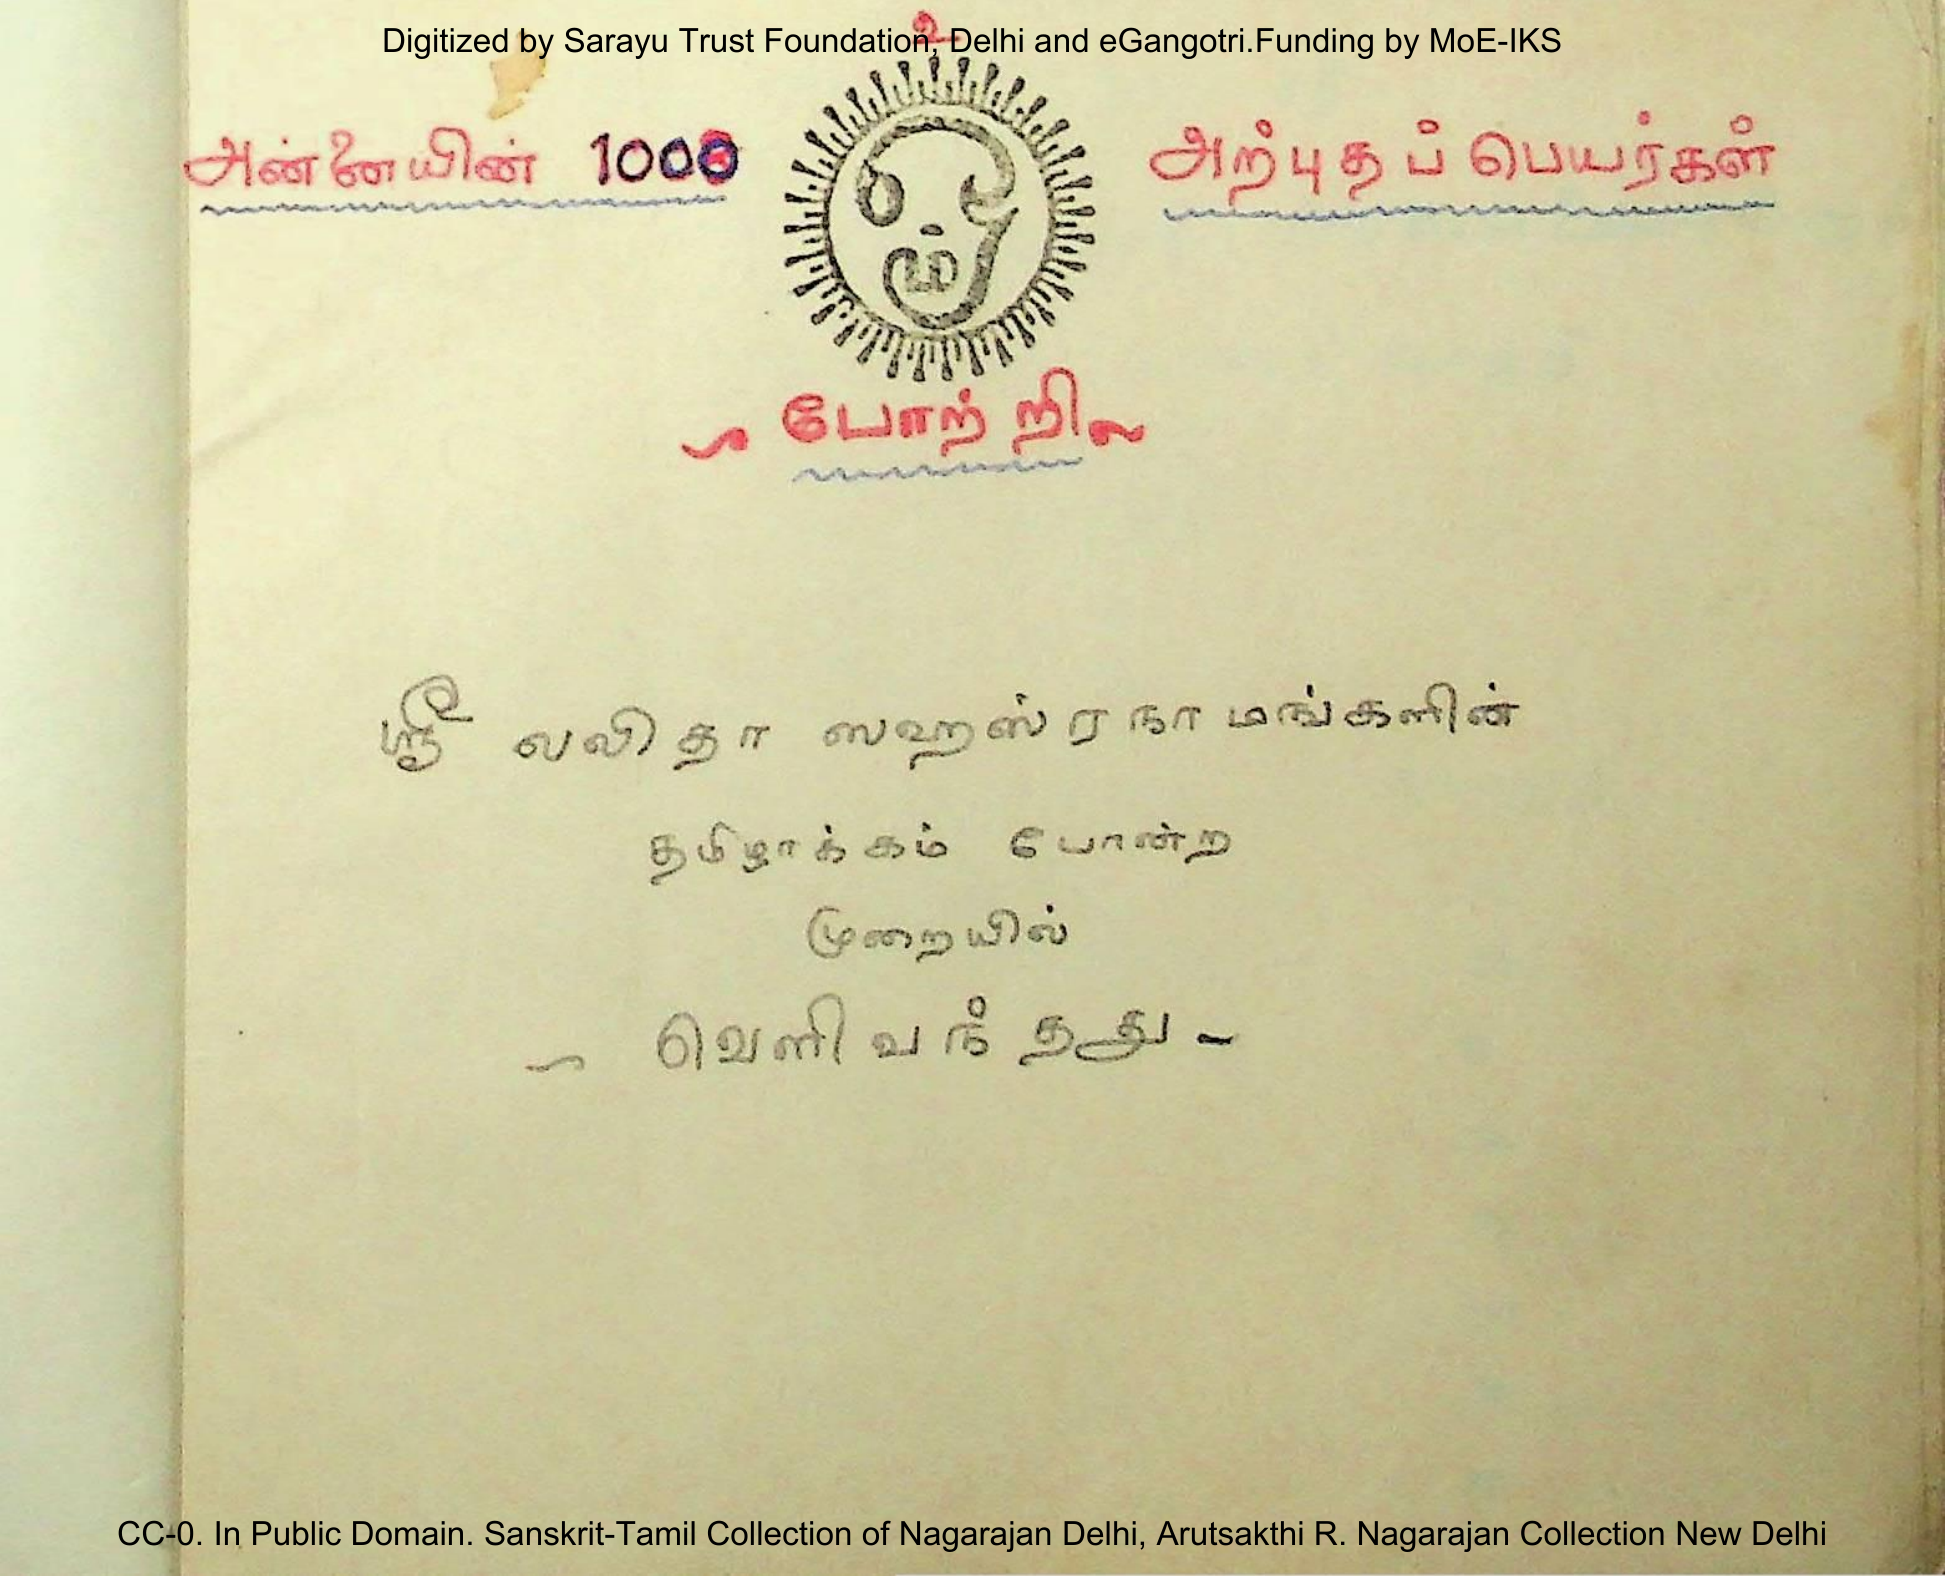 உ
Digitized by Sarayu Trust Foundation, Delhi and eGangotri.Funding by MoE-IKS
அன்னையின் 1000 அற்புதப் பெயர்கள்
ஓம்
போற்றி
ஸ்ரீ லலிதா ஸஹஸ்ரநாமங்களின்
தமிழாக்கம் போன்ற
முறையில்
வெளிவந்தது -
CC-0. In Public Domain. Sanskrit-Tamil Collection of Nagarajan Delhi, Arutsakthi R. Nagarajan Collection New Delhi